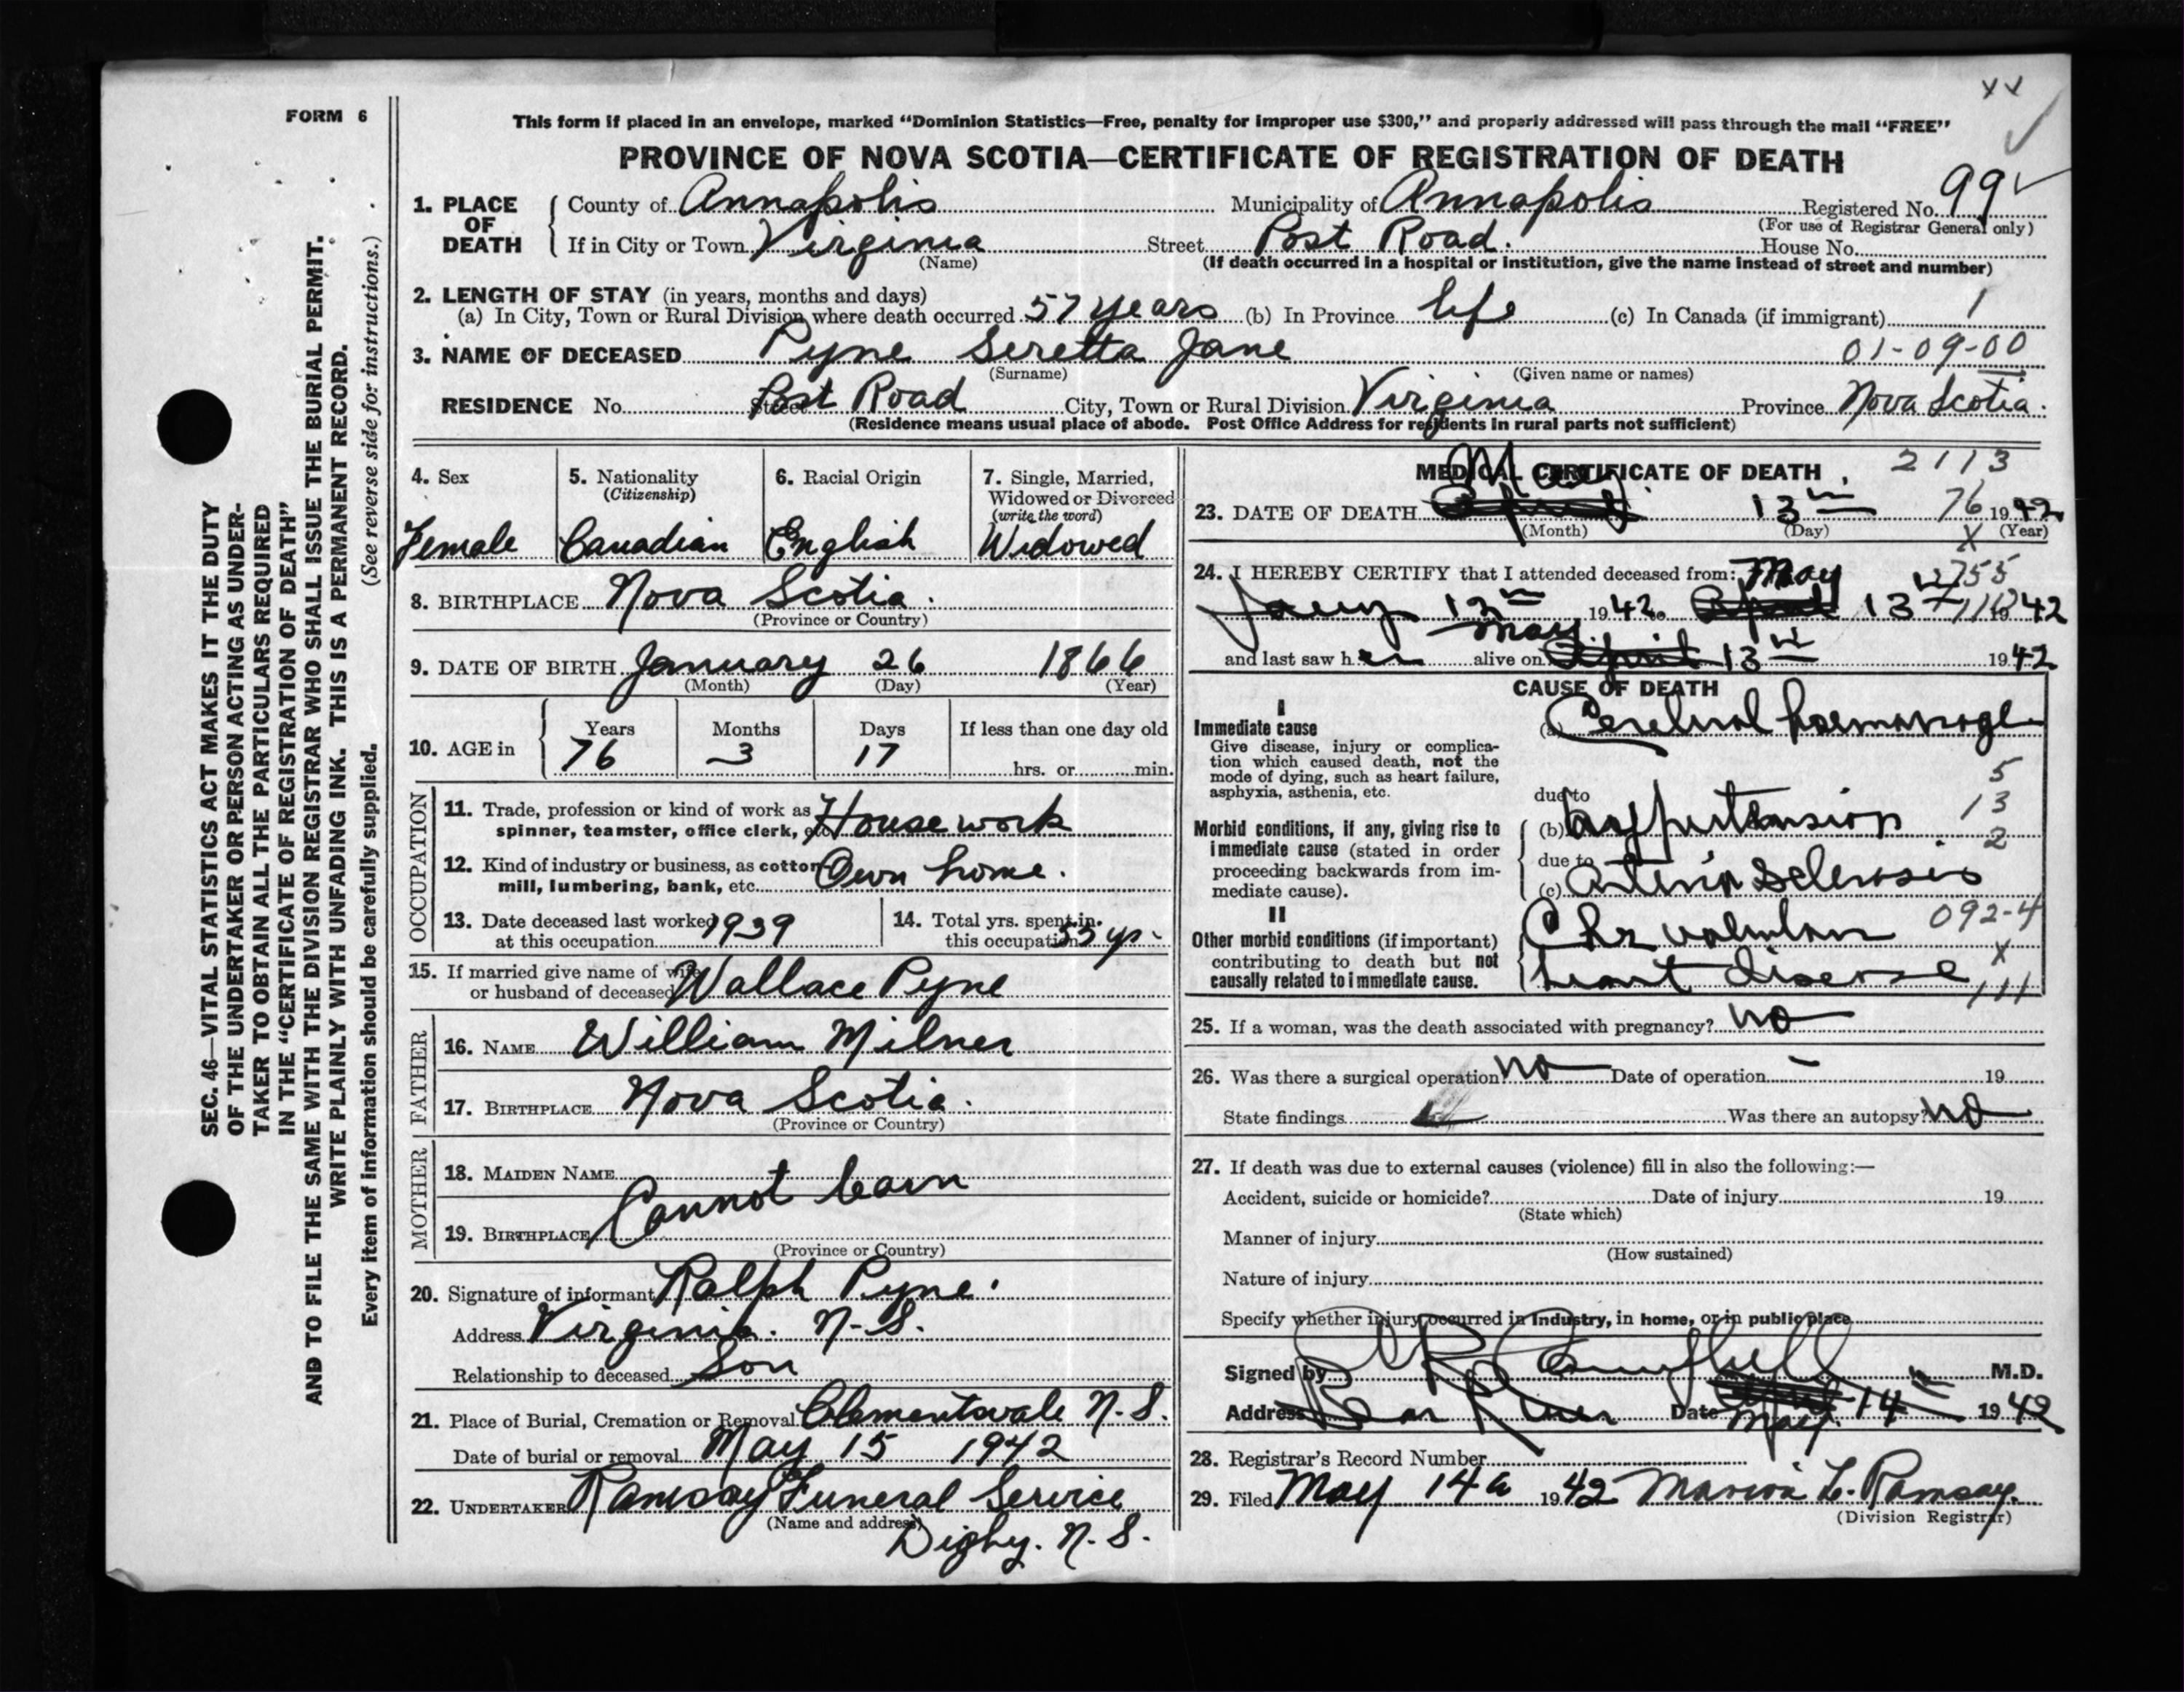 FORM 6
SEC. 46—VITAL STATISTICS ACT MAKES IT THE DUTY
OF THE UNDERTAKER OR PERSON ACTING AS UNDER-
TAKER TO OBTAIN ALL THE PARTICULARS REQUIRED
IN THE "CERTIFICATE OF REGISTRATION OF DEATH"
AND TO FILE THE SAME WITH THE DIVISION REGISTRAR WHO SHALL ISSUE THE BURIAL PERMIT.
WRITE PLAINLY WITH UNFADING INK. THIS IS A PERMANENT RECORD.
Every item of information should be carefully supplied. (See reverse side for instructions.)
xx
This form if placed in an envelope, marked "Dominion Statistics—Free, penalty for improper use $300," and properly addressed will pass through the mail "FREE"
PROVINCE OF NOVA SCOTIA—CERTIFICATE OF REGISTRATION OF DEATH
1. PLACE OF DEATH County of Annapolis Municipality of Annapolis Registered No. 99
(For use of Registrar General only)
If in City or Town Virginia Street Post Road. House No.
(Name) (If death occurred in a hospital or institution, give the name instead of street and number)
2. LENGTH OF STAY (in years, months and days)
(a) In City, Town or Rural Division where death occurred 57 years (b) In Province life (c) In Canada (if immigrant) 1
3. NAME OF DECEASED Pyne Seretta Jane 01-09-00
(Surname) (Given name or names)
RESIDENCE No. Street Post Road City, Town or Rural Division Virginia Province Nova Scotia.
(Residence means usual place of abode. Post Office Address for residents in rural parts not sufficient)
4. Sex Female
5. Nationality (Citizenship) Canadian
6. Racial Origin English
7. Single, Married, Widowed or Divorced (write the word) Widowed
8. BIRTHPLACE Nova Scotia.
(Province or Country)
9. DATE OF BIRTH January 26 1866
(Month) (Day) (Year)
10. AGE in Years 76 Months 3 Days 17 If less than one day old
hrs. or min.
OCCUPATION
11. Trade, profession or kind of work as spinner, teamster, office clerk, etc. House work
12. Kind of industry or business, as cotton mill, lumbering, bank, etc. Own home.
13. Date deceased last worked at this occupation 1939
14. Total yrs. spent in this occupation yr.
15. If married give name of wife or husband of deceased Wallace Pyne
FATHER
16. NAME William Milner
17. BIRTHPLACE Nova Scotia.
(Province or Country)
MOTHER
18. MAIDEN NAME
Cannot learn
19. BIRTHPLACE
(Province or Country)
20. Signature of informant Ralph Pyne.
Address Virginia. N-S.
Relationship to deceased Son
21. Place of Burial, Cremation or Removal Clementsvale N.S.
Date of burial or removal May 15 1942
22. UNDERTAKER Ramsay Funeral Service
(Name and address)
Digby. N.S.
MEDICAL CERTIFICATE OF DEATH 2113
23. DATE OF DEATH April May 13th 76 1942
(Month) (Day) X (Year)
24. I HEREBY CERTIFY that I attended deceased from: May
13th 1942 to April 13th 1942
and last saw her alive on April May 13th 1942
CAUSE OF DEATH
I
Immediate cause (a) Cerebral haemorrage
Give disease, injury or complica-
tion which caused death, not the
mode of dying, such as heart failure,
asphyxia, asthenia, etc.
5
due to
13
Morbid conditions, if any, giving rise to (b) hypertension
immediate cause (stated in order 2
proceeding backwards from im- due to
mediate cause). (c) arterio sclerosis
II
Other morbid conditions (if important) Chr valvular 092-4
contributing to death but not X
causally related to immediate cause. heart disease 111
25. If a woman, was the death associated with pregnancy? no
26. Was there a surgical operation? no Date of operation – 19
State findings Was there an autopsy? no
27. If death was due to external causes (violence) fill in also the following:—
Accident, suicide or homicide? Date of injury 19
(State which)
Manner of injury
(How sustained)
Nature of injury
Specify whether injury occurred in Industry, in home, or in public place
Signed by Campbell M.D.
Address Bear River Date April May 14th 1942
28. Registrar's Record Number
29. Filed May 14 1942 Marion L. Ramsay.
(Division Registrar)